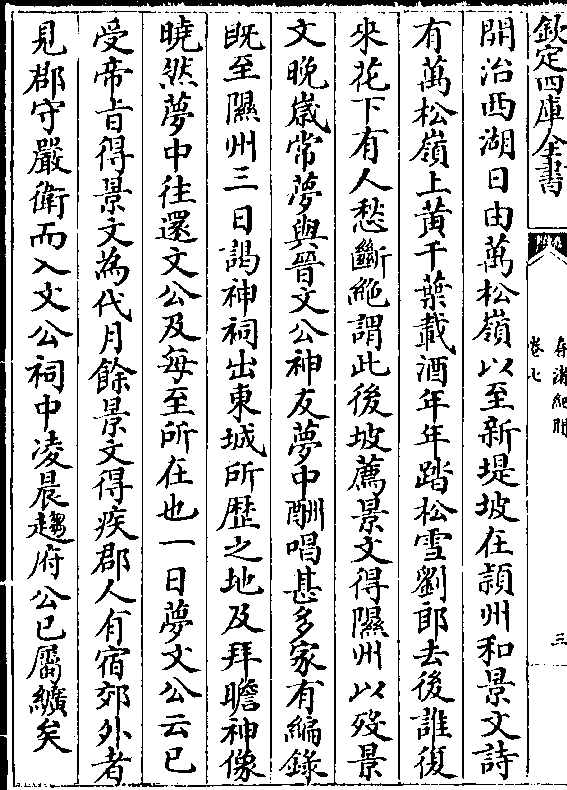 欽定四庫全書
春渚紀聞
卷七
三
開治西湖日由萬松嶺以至新堤坡在潁州和景文詩
有萬松嶺上黄千葉載酒年年踏松雪劉郎去後誰復
來花下有人愁斷絶謂此後坡薦景文得隰州以殁景
文晩嵗常夢與晉文公神友夢中酬唱甚多家有編錄
既至隰州三日謁神祠出東城所歴之地及拜瞻神像
曉然夢中往還文公及每至所在也一日夢文公云已
受帝㫖得景文為代月餘景文得疾郡人有宿郊外者
見郡守嚴衛而入文公祠中凌晨趨府公已屬纊矣